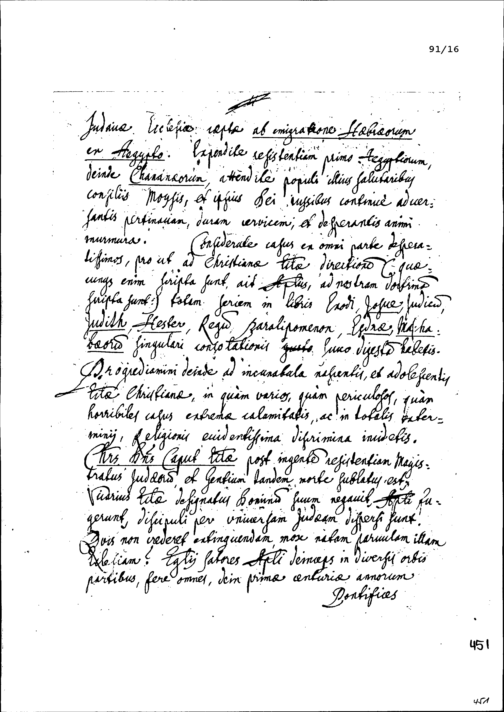 91/16
Judaicæ Ecclesiæ cæptæ ab emigratione Hæbræorum
ex Aegypto. Expendite resistentiam primo Aegyptiorum,
deinde Chananæorum, attendite populi illius salutaribus
consiliis Moysis, et ipsius Dei iussibus continuè adver-
santis pertinaciam, duram cervicem, et desperantis animi
murmura. Considerate casus ex omni parte despera-
tissimos, pro ut ad Christianæ vitæ directionē (: quæ-
cunqs enim scripta sunt, ait Aplus, ad nostram doctrinā
scripta sunt :) totam seriem in libris Exodi, Josue, Judicū,
Judith, Hester, Regū, Paralipomenon, Esdræ, Macha-
bæorū singulari consolationis succo digestā habetis.
Progrediamini deinde ad incunabula nascentis, et adolescentis
vitæ Christianæ, in quàm varios, quàm periculosos, quàm
horribiles casus extremæ calamitatis, ac in totalis exter-
minii, Religionis evidentissima discrimina incidetis.
Chrs Dns Caput vitæ post ingentē resistentiam Magis-
tratus Judæorū et Gentium tandem morte sublatus est,
Vicarius vitæ designatus Dominū suum negavit, Apli fu-
gerunt, discipuli per universam Judæam dispersi sunt.
Quis non crederet extinguendam mox natam parvulam illam
Ecclesiam? Eccles satores Apli deinceps in diversis orbis
partibus, fere omnes, dein primæ centuriæ annorum
Pontifices
451
451